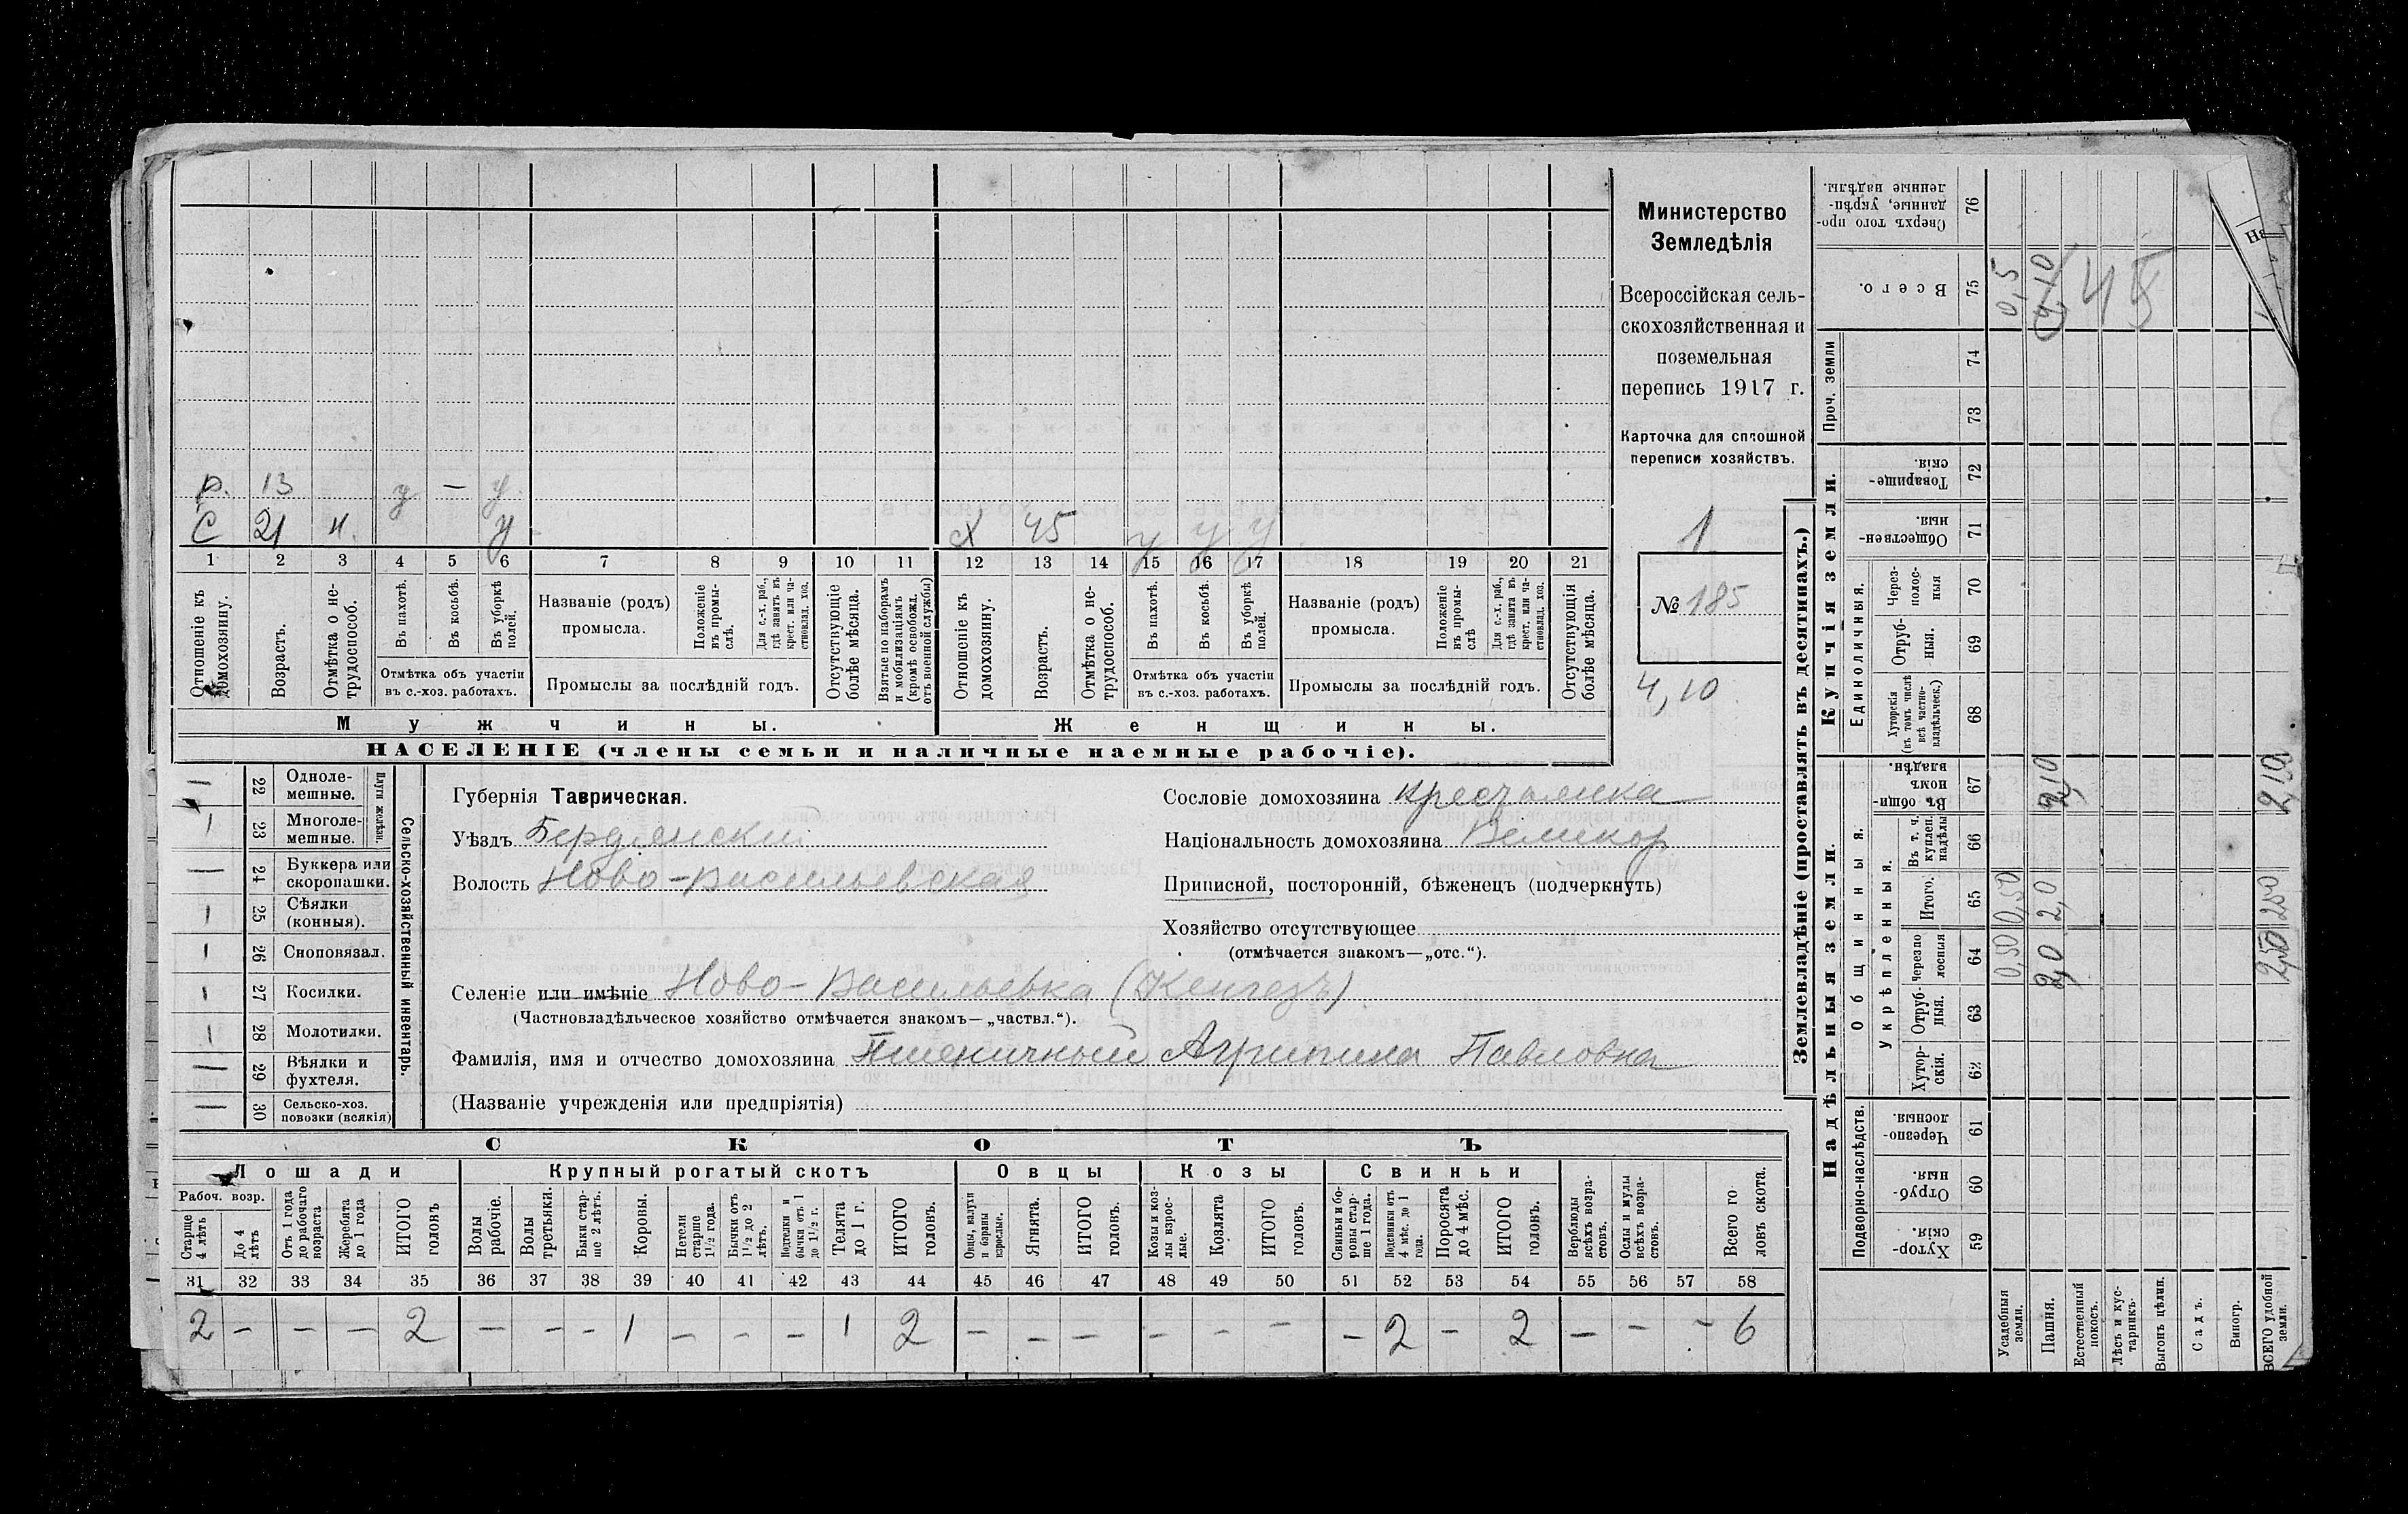 Министерство
Земледѣлія
Всероссійская сель-
скохозяйственная и
поземельная
перепись 1917 г.
Карточка для сплошной
переписи хозяйствъ.
1
№ 185
4,10
р. 13 у — у
С 21 н. у х 45 у у у
1 2 3 4 5 6 7 8 9 10 11 12 13 14 15 16 17 18 19 20 21
Отношеніе къ домохозяину.
Возрастъ.
Отмѣтка о не-трудоспособ.
Въ пахотѣ.
Въ косьбѣ.
Въ уборкѣ полей.
Отмѣтка объ участіи
въ с.-хоз. работахъ.
Названіе (родъ)
промысла.
Положеніе въ промы-слѣ.
Для с.-х. раб., гдѣ занятъ въ крест. или ча-стновлад. хоз.
Промыслы за послѣдній годъ.
Отсутствующіе болѣе мѣсяца.
Взятые по наборамъ и мобилизаціямъ (кромѣ освобожд. отъ военной службы)
Отношеніе къ домохозяину.
Возрастъ.
Отмѣтка о не-трудоспособ.
Въ пахотѣ.
Въ косьбѣ.
Въ уборкѣ полей.
Отмѣтка объ участіи
въ с.-хоз. работахъ.
Названіе (родъ)
промысла.
Положеніе въ промы-слѣ
Для с.-х. раб., гдѣ занята въ крест. или ча-стновлад. хоз.
Промыслы за послѣдній годъ.
Отсутствующія болѣе мѣсяца.
Мужчины.
Женщины.
НАСЕЛЕНІЕ (члены семьи и наличные наемные рабочіе).
Сельско-хозяйственный инвентарь.
Плуги желѣзн.
— 22 Одноле-мешные.
| 23 Многоле-мешные.
— 24 Буккера или скоропашки.
| 25 Сѣялки (конныя).
| 26 Сноповязал.
| 27 Косилки.
| 28 Молотилки.
— 29 Вѣялки и фухтеля.
— 30 Сельско-хоз. повозки (всякія)
Губернія Таврическая.
Уѣздъ Бердянски
Волость Ново-Васильевская
Сословіе домохозяина крестьянка
Національность домохозяина Великор
Приписной, посторонній, бѣженецъ (подчеркнуть)
Хозяйство отсутствующее
(отмѣчается знакомъ—„отс.“).
Селеніе или имѣніе Ново-Васильевка (Кенгезъ)
(Частновладѣльческое хозяйство отмѣчается знакомъ—„частвл.“).
Фамилія, имя и отчество домохозяина Пшеничный Агрипина Павловна
(Названіе учрежденія или предпріятія)
СКОТЪ
Лошади Крупный рогатый скотъ Овцы Козы Свиньи
Рабоч. возр.
Старше 4 лѣтъ
До 4 лѣтъ
Отъ 1 года до рабочаго возраста
Жеребята до 1 года
ИТОГО головъ
Волы рабочіе.
Волы третьяки.
Быки стар-ше 2 лѣтъ.
Коровы.
Нетели старше 1½ года.
Бычки отъ 1½ до 2 лѣтъ.
Подтелки и бычки отъ 1 до 1½ г.
Телята до 1 г.
ИТОГО головъ.
Овцы, валухи и бараны взрослые.
Ягнята.
ИТОГО головъ.
Козы и коз-лы взрос-лые.
Козлята
ИТОГО головъ.
Свиньи и бо-ровы стар-ше 1 года.
Подсвинки отъ 4 мѣс. до 1 года.
Поросята до 4 мѣс.
ИТОГО головъ.
Верблюды всѣхъ возра-стовъ.
Ослы и мулы всѣхъ возра-стовъ.
Всего го ловъ скота.
31 32 33 34 35 36 37 38 39 40 41 42 43 44 45 46 47 48 49 50 51 52 53 54 55 56 57 58
2 — — — 2 — — — 1 — — — 1 2 — — — — — — — 2 — 2 — — — 6
Землевладѣніе (проставлять въ десятинахъ.)
Надѣльныя земли.
Купчія земли.
Подворно-наслѣдств.
Общинныя.
Укрѣпленныя.
Единоличныя.
Проч. земли
59 Хутор-скія.
60 Отруб-ныя.
61 Черезпо-лосныя.
62 Хутор-скія.
63 Отруб-ныя.
64 Черезпо лосныя
65 Итого.
66 Въ т. ч. куплен. надѣлы
67 Въ общин-номъ владѣн.
68 Хуторскія (въ томъ числѣ всѣ частно-владѣльческ.)
69 Отруб-ныя.
70 Через-полос-ныя
71 Обществен-ныя.
72 Товарище-скія.
73
74
75 Всего.
76 Сверхъ того про-данные, укрѣп-ленные надѣлы.
Усадебныя земли. 0,50 0,50 0,5
Пашня. 2,0 2,0 2,10 4,10
Естественный покосъ.
Лѣсъ и кус-тарникъ.
Выгонъ цѣлин.
Садъ.
Виногр.
ВСЕГО удобной земли. 2,50 250 2,10
45